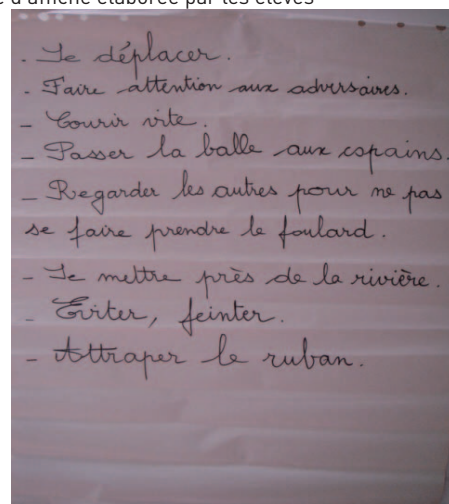 d'affiche élaborée par les élèves
. Se déplacer.
. Faire attention aux adversaires.
- Courir vite.
- Passer la balle aux copains.
- Regarder les autres pour ne pas
se faire prendre le foulard.
- Se mettre près de la rivière.
- Eviter, feinter.
- Attraper le ruban.